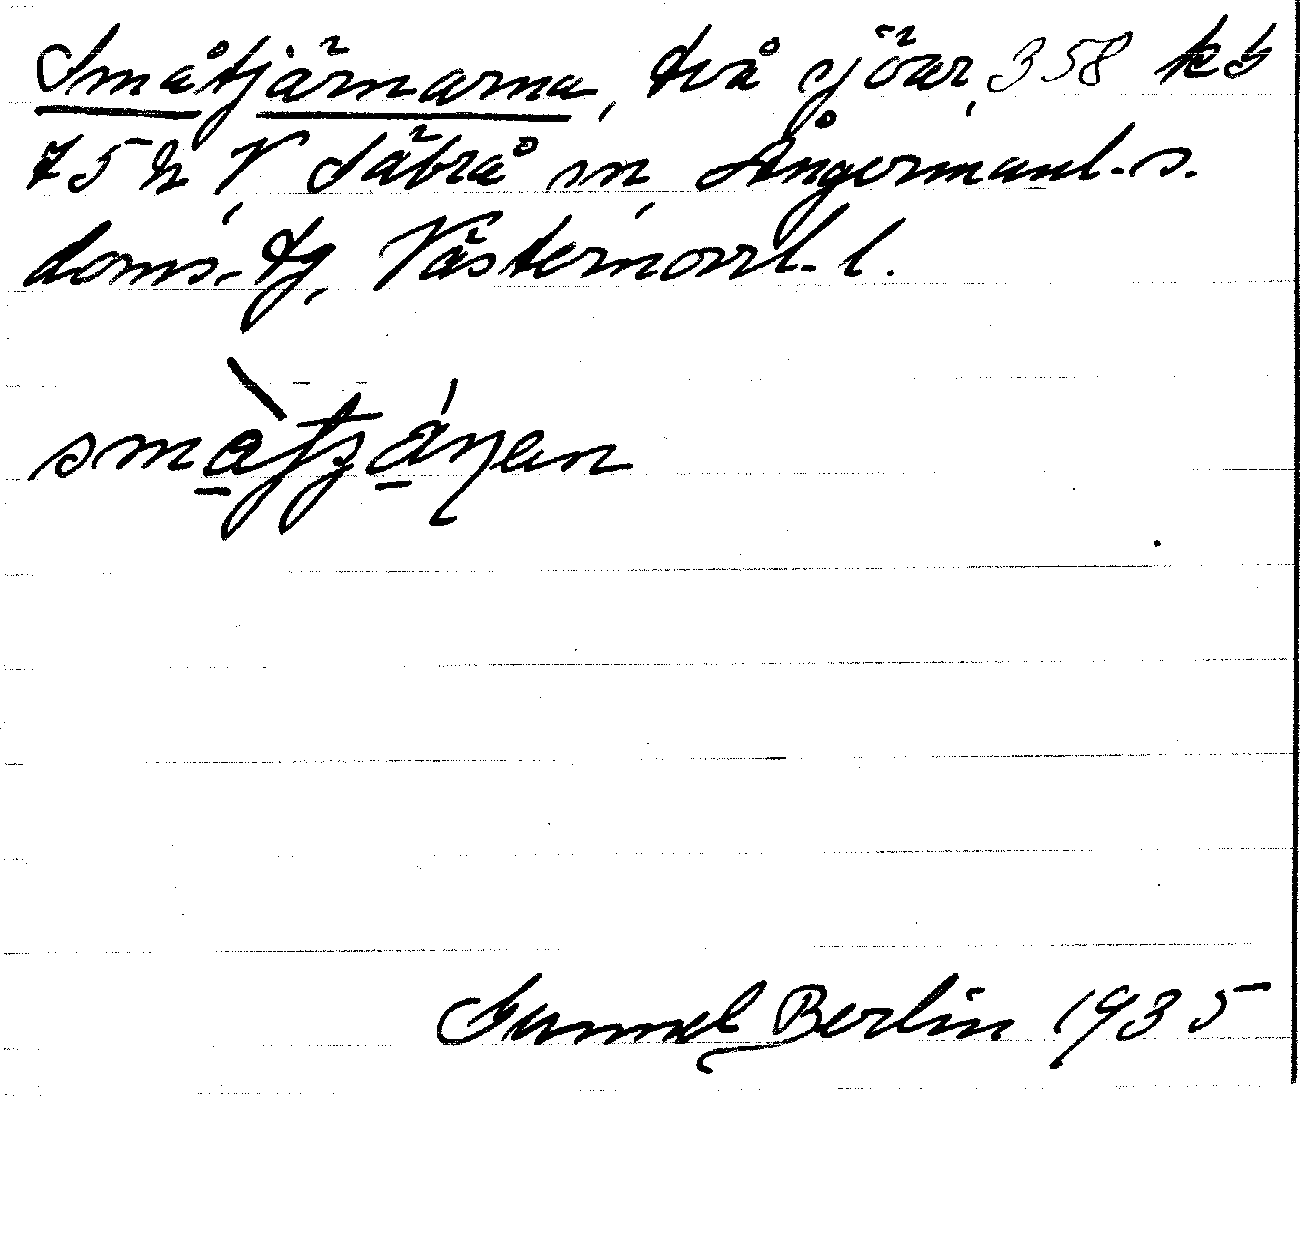 Småtjärnarna, två sjöar, 358 kb
75 h, V Säbrå sn, Ångermanl. s.
doms. tg, Västernorrl. l.
Gunnel Berlin 1935